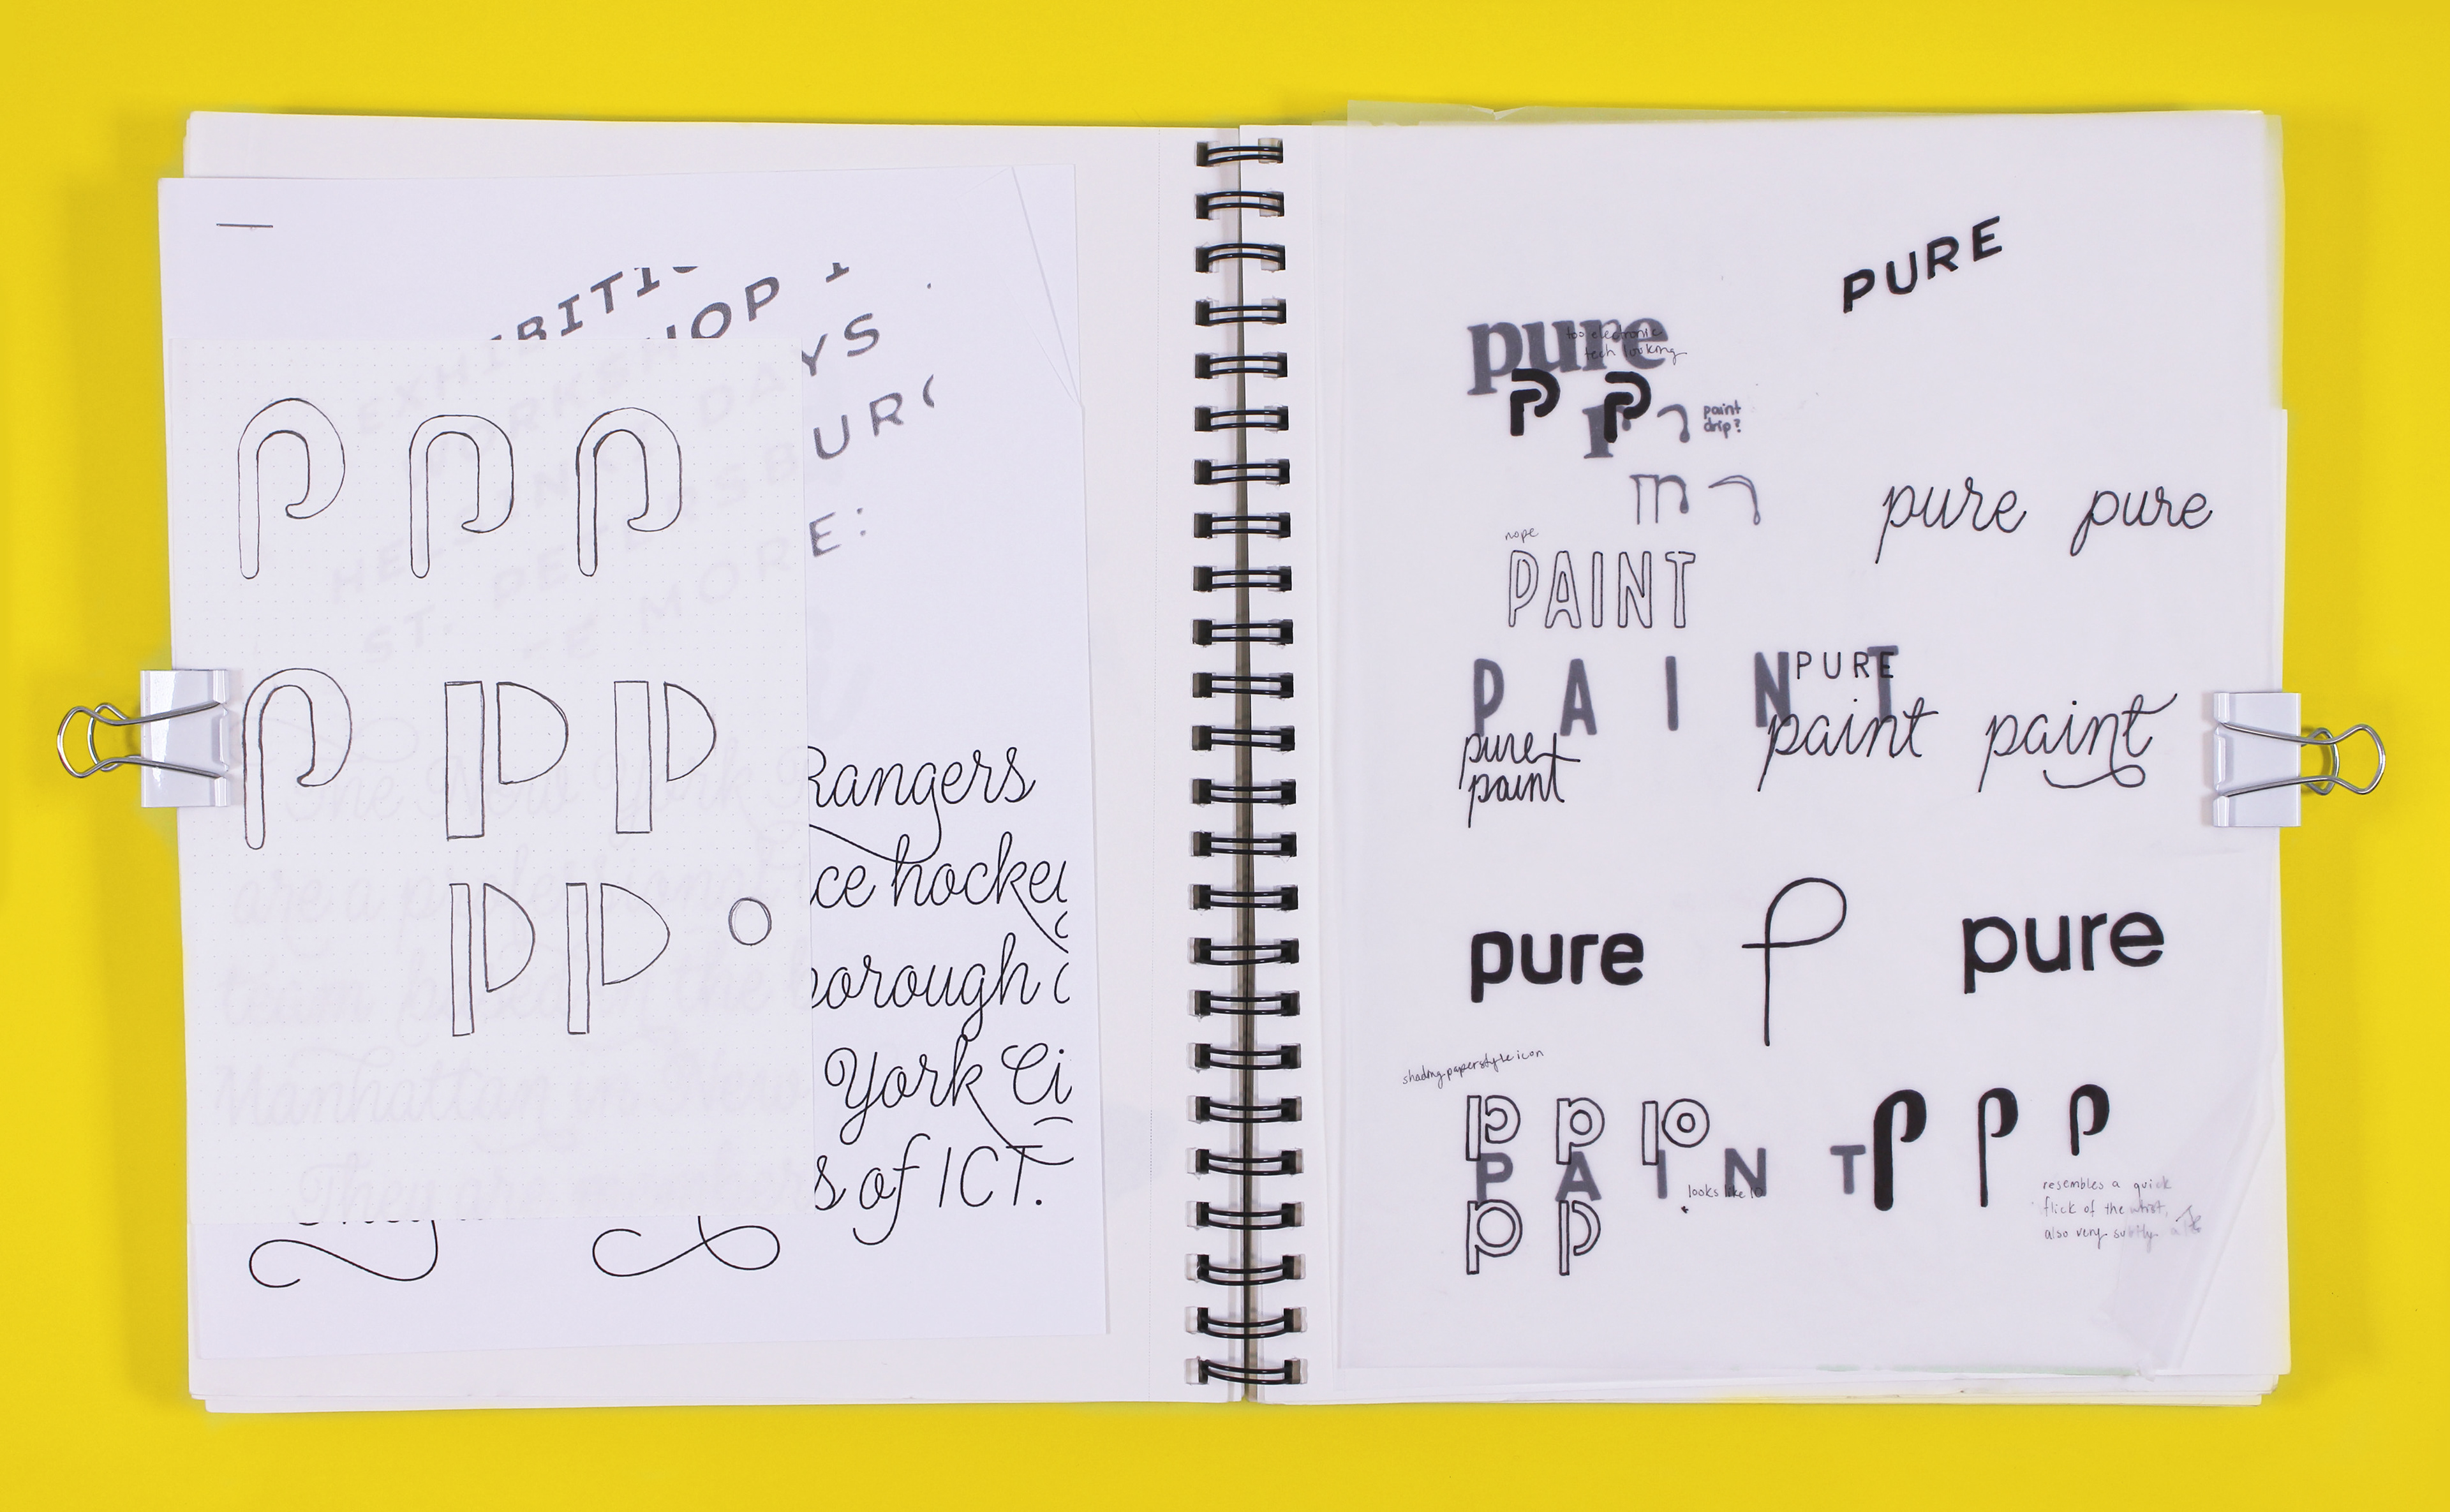 EXHIBITI
WORKSHOP
DAYS
HELSINKI
ST. PETERSBURG
MORE:
P P P
P P P
P P
The New York Rangers
are a professional ice hockey
team based in the borough o
Manhattan in New York Ci
They are members of ICT.
PURE
pure
too electronic
tech looking
P P
r
paint
drip?
m
pure pure
nope
PAINT
PAINT
PURE
pure
paint
paint paint
pure P pure
shading paper style icon
P P P
P P P
PAINT
looks like 10
P P
resembles a quick
flick of the wrist,
also very subtly a